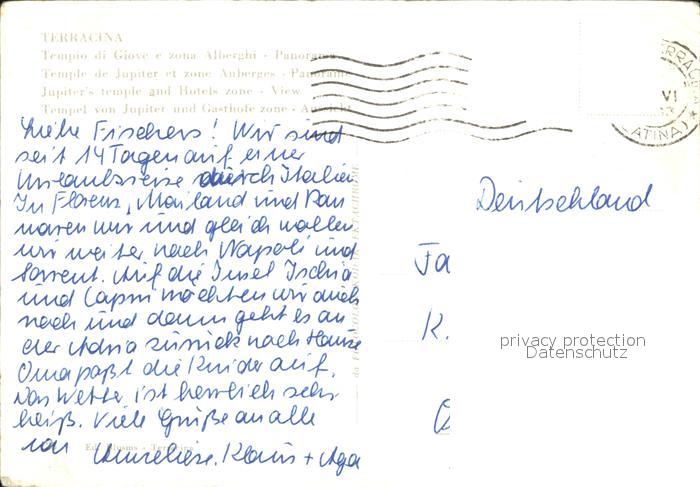 TERRACINA
Tempio di Giove e zona Alberghi - Panorama
Temple de Jupiter et zone Auberges - Panorame
Jupiter's temple and Hotels zone - View
Tempel von Jupiter und Gasthofe zone - Aussicht
Liebe Fischers! Wir sind
seit 14 Tagen auf einer
Urlaubsreise durch Italien.
In Florenz, Mailand und
waren wir und gleich wollen
wir weiter nach Napoli und
Sorrent. Auf die Insel Ischia
und Capri möchten wir auch
noch und dann geht es an
der Adria zurück nach Hause
Oma paßt die Kinder auf.
Das Wetter ist herrlich sehr
heiß. Viele Grüße an alle
von
Anneliese, Klaus + Aga
Deutschland
Fa
K.
privacy protection
Datenschutz
VI
LATINA